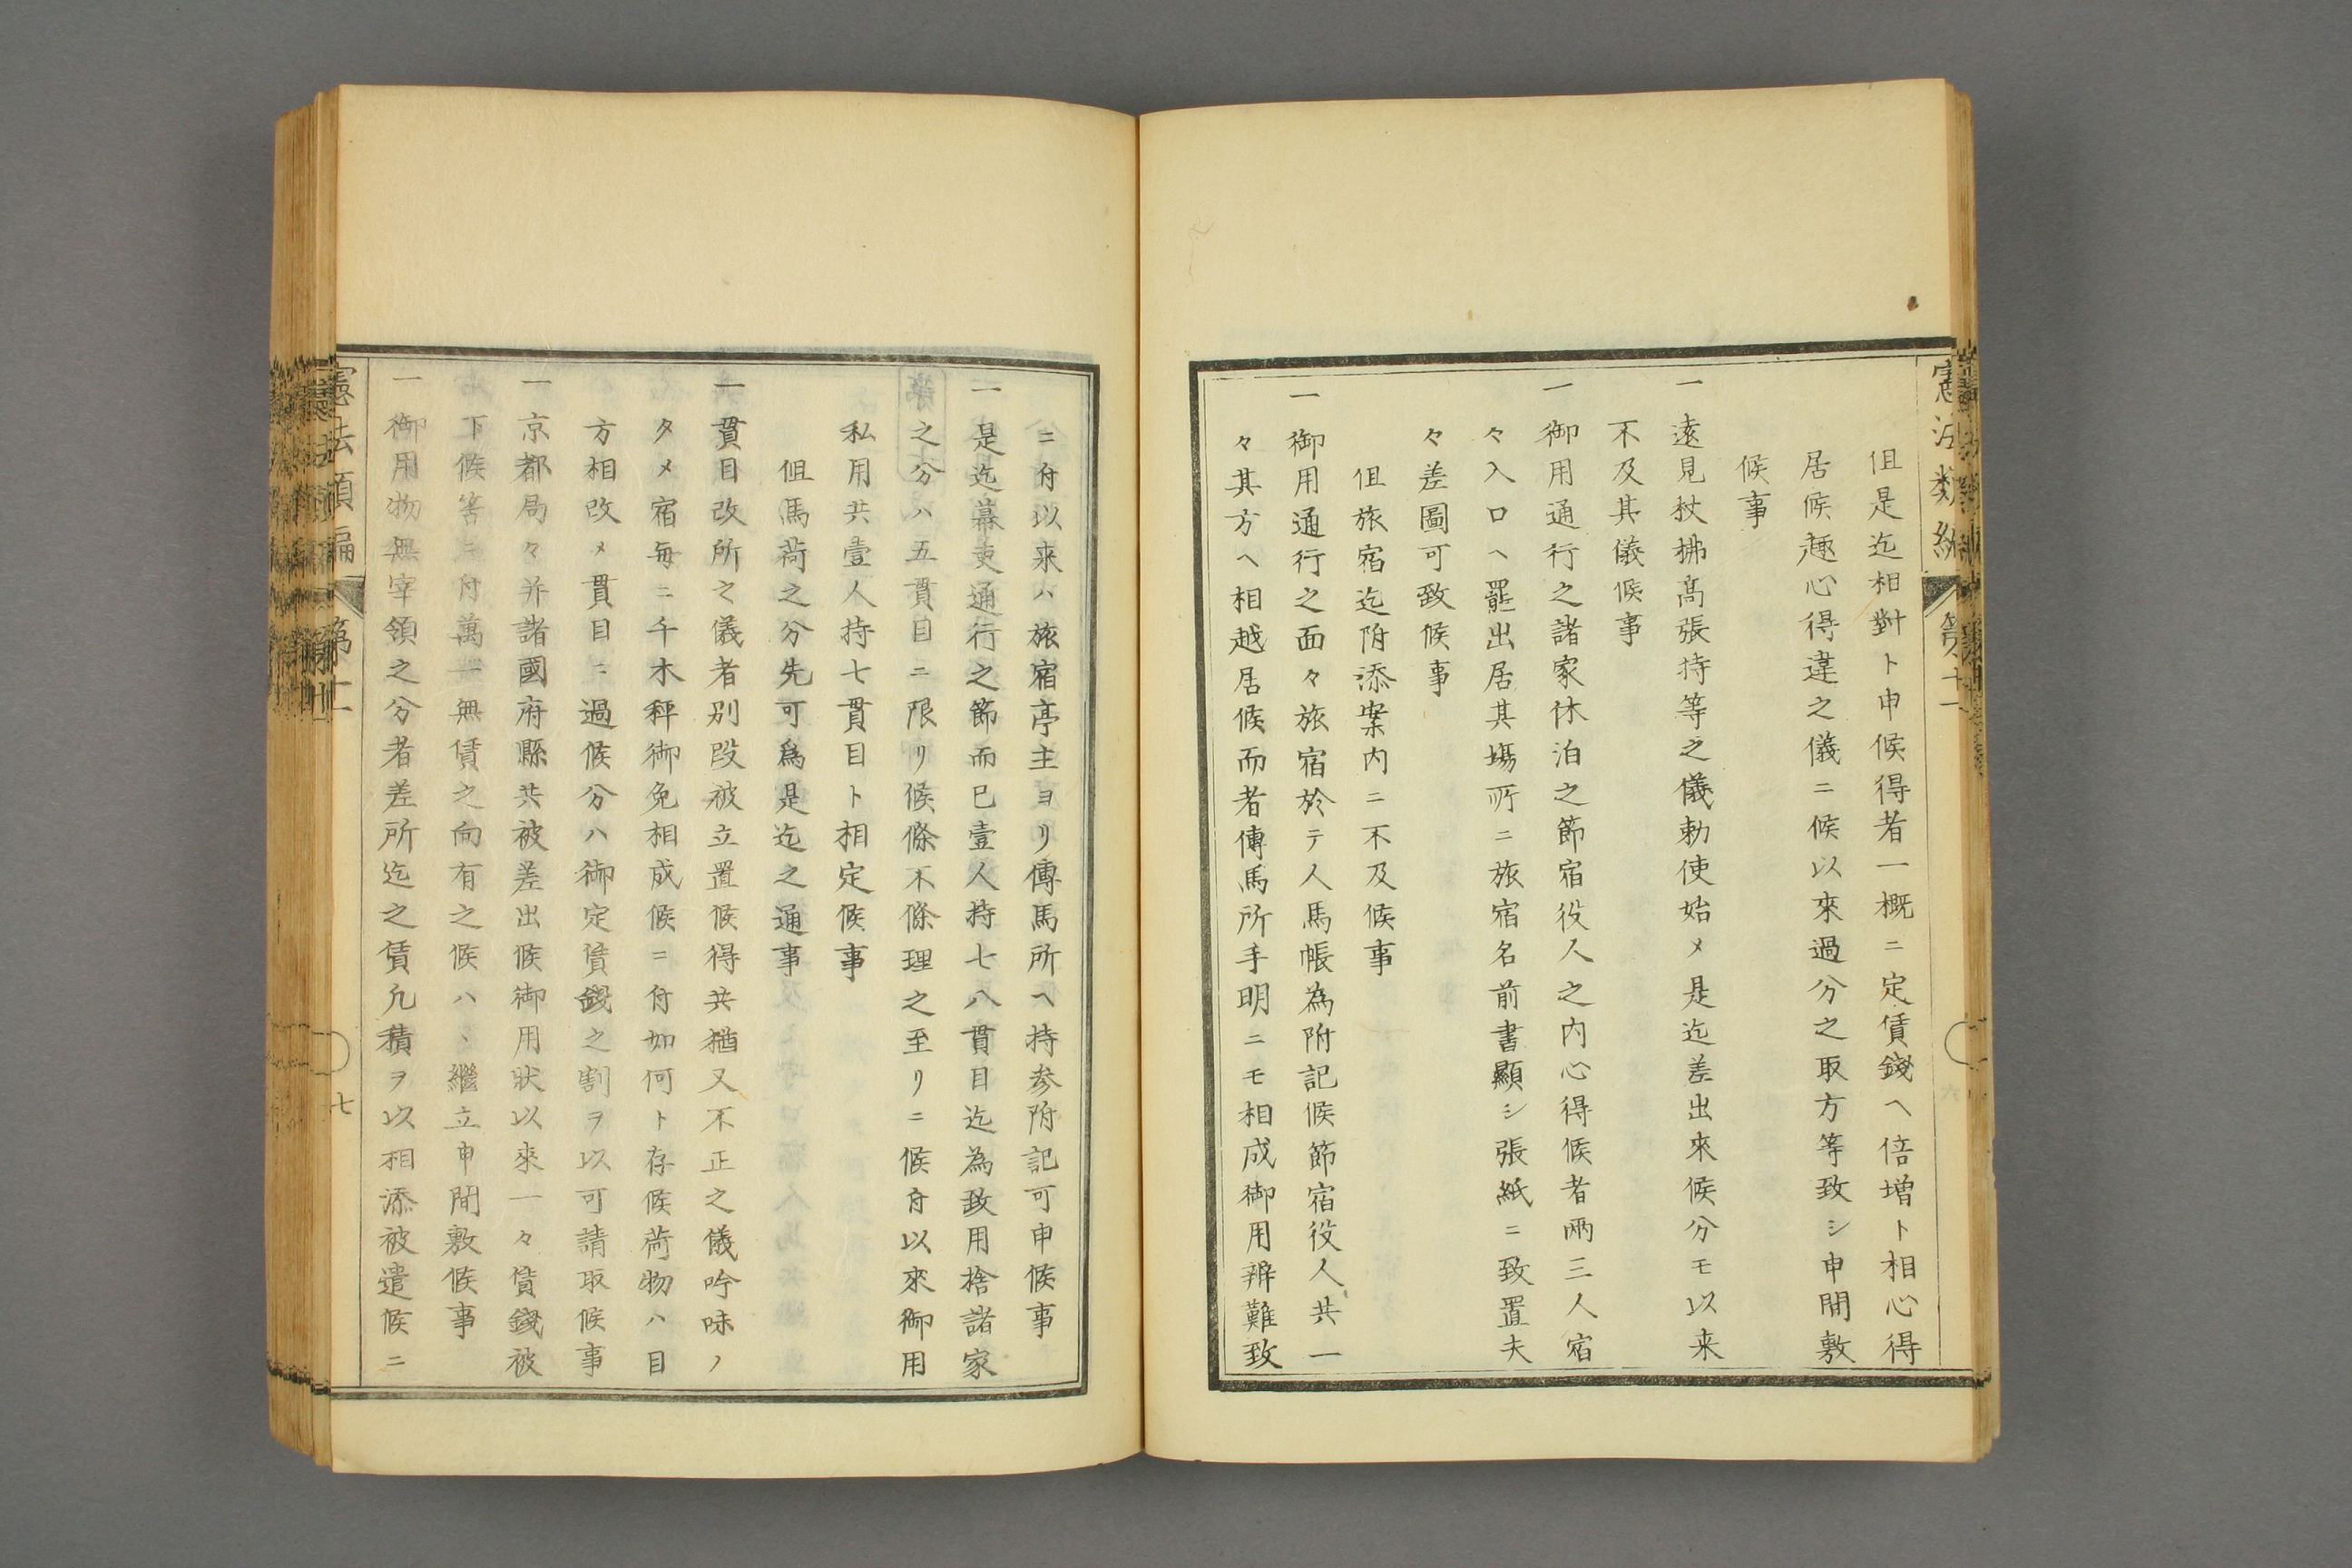 憲法類編 第十一
但是迄相對ト申候得者一概ニ定賃錢ヘ倍増ト相心得
居候趣心得違之儀ニ候以來過分之取方等致シ申間敷
候事
一遠見杖拂髙張持等之儀勅使始メ是迄差出來候分モ以来
不及其儀候事
一御用通行之諸家休泊之節宿役人之内心得候者兩三人宿
々入口ヘ罷出居其塲所ニ旅宿名前書顯シ張紙ニ致置夫
々差圖可致候事
但旅宿迄附添案内ニ不及候事
一御用通行之面々旅宿於テ人馬帳為附記候節宿役人共一
々其方ヘ相越居候而者傳馬所手明ニモ相成御用辨難致
ニ付以来ハ旅宿亭主ヨリ傳馬所ヘ持参附記可申候事
一是迄幕吏通行之節而已壹人持七八貫目迄為致用捨諸家
之分ハ五貫目ニ限リ候條不條理之至リニ候付以來御用
私用共壹人持七貫目ト相定候事
但馬荷之分先可爲是迄之通事
一貫目改所之儀者別段被立置候得共猶又不正之儀吟味ノ
タメ宿毎ニ千木秤御免相成候ニ付如何ト存候荷物ハ目
方相改メ貫目ニ過候分ハ御定賃錢之割ヲ以可請取候事
一京都局々并諸國府縣共被差出候御用狀以來一々賃錢被
下候筈ニ付萬一無賃之向有之候ハヽ繼立申間敷候事
一御用物無宰領之分者差所迄之賃凢積ヲ以相添被遣候ニ
憲法類編 第十一
七